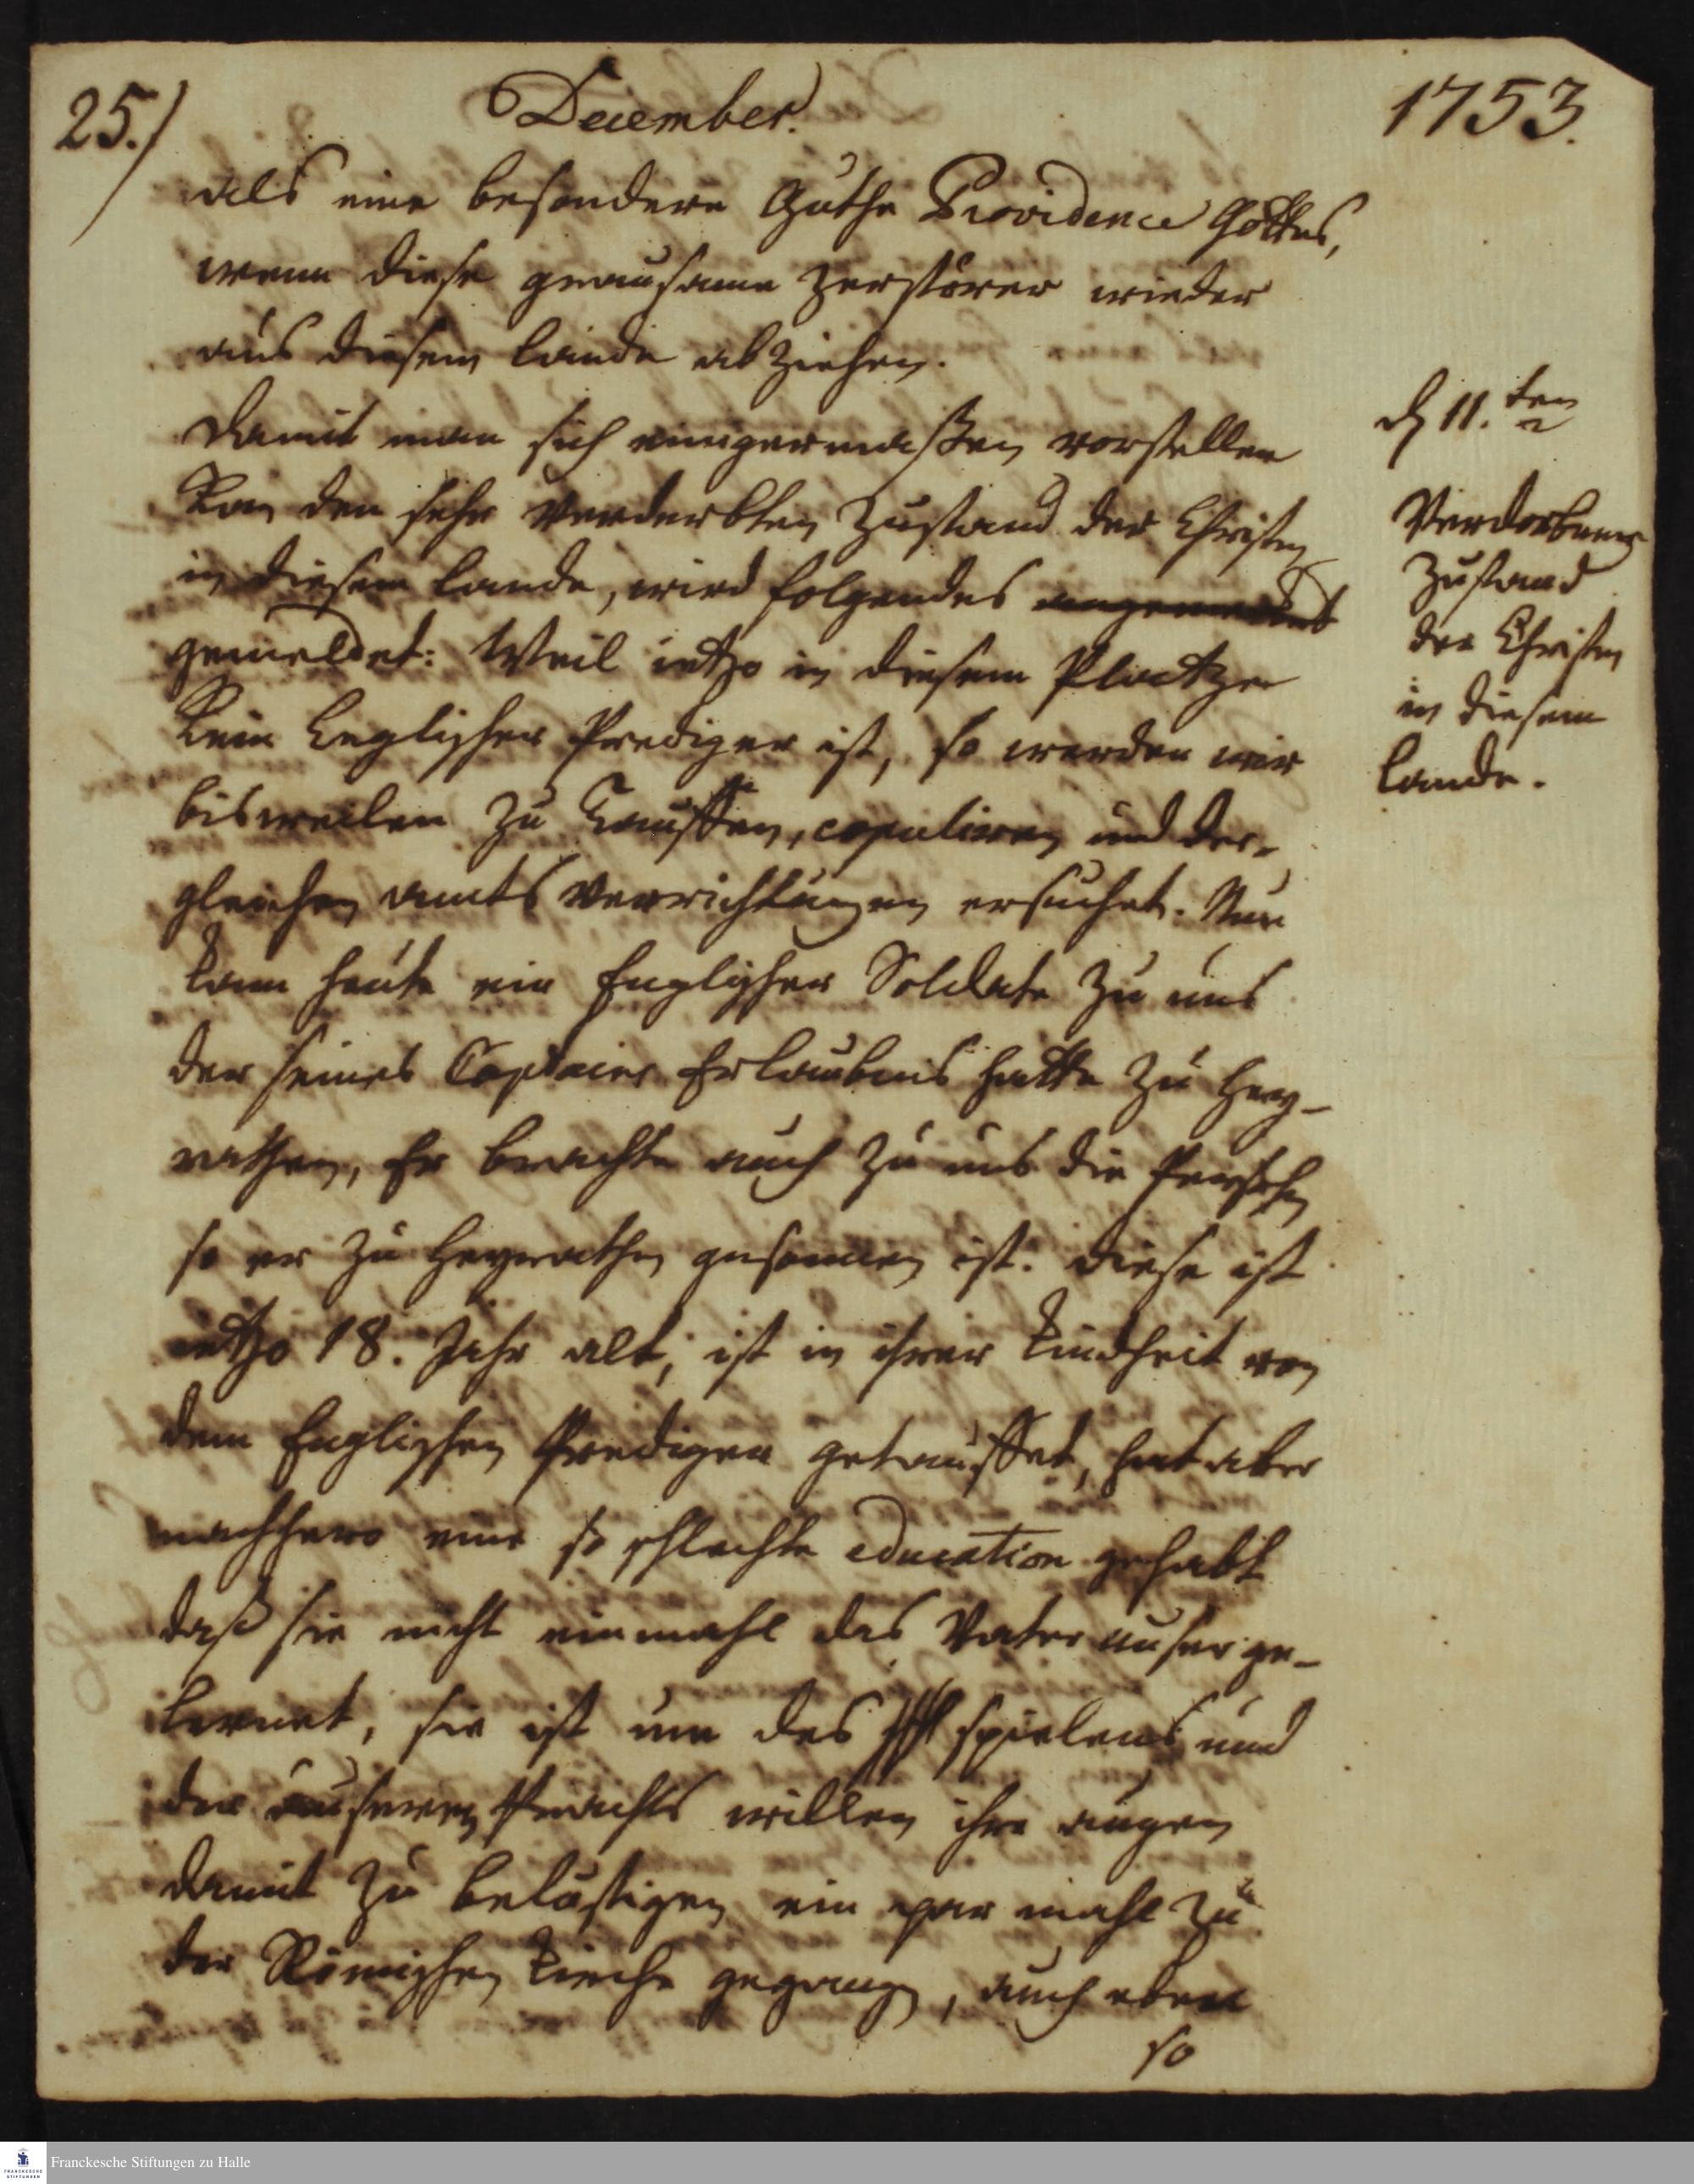 25./
December.
1753.
als eine besondere Guthe Providence Gottes,
wenn diese grausame Zerstörer wieder
aus diesem Lande abziehen.
Damit man sich einigermaßen vorstellen
Kan den sehr verderbten Zustand der Christen
in diesem Lande, wird folgendes
gemeldet: Weil ietzo in diesem Platze
Kein Englischer Prediger ist, so werden wir
bisweilen zu Tauffen, copuliren und der-
gleichen amts Verrichtungen ersuchet. Nun
kam heute ein Englischer Soldate zu uns
der seines Captains Erlaubnis hatte zu Hey-
rathen, Er brachte auch zu uns die Persohn
so er zu Heyrathen gesonnen ist. Diese ist
ietzo 18. Jahr alt, ist in ihrer Kindheit von
dem Englischen Prediger getauffet, hat aber
nachhero eine so schlechte education gehabt
daß sie nicht einmahl das Vater unser ge-
lernet, sie ist um des spielens und
der äuseren Prachts willen ihre augen
damit zu belustigen ein paar mahl zu
der Römischen Kirche gegangen, auch eben
so
d 11.ten
Verdorbener
Zustand
der Christen
in diesem
Lande.
Franckesche Stiftungen zu Halle